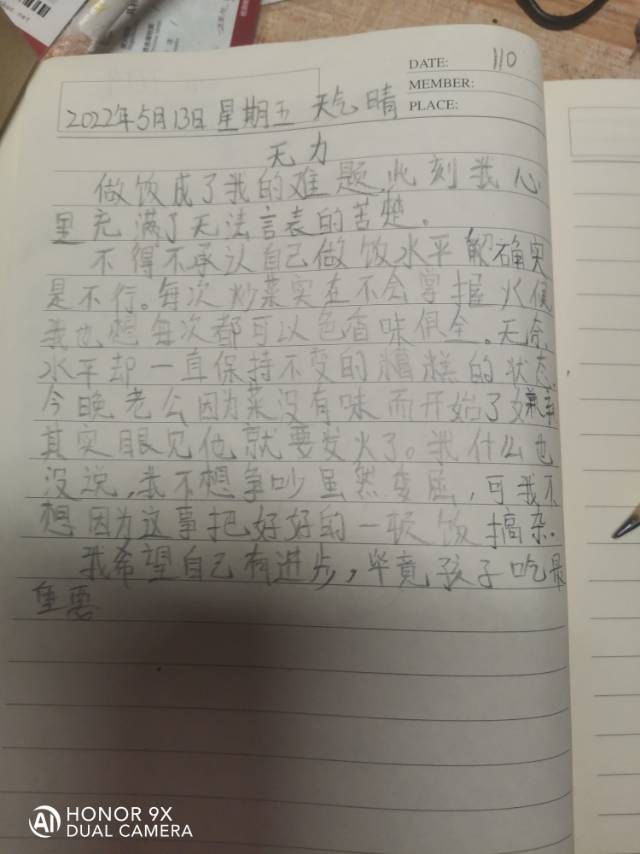 DATE: 110
MEMBER:
PLACE:
2022年5月13日 星期五 天气 晴
无力
做饭成了我的难题,此刻我心
里充满了无法言表的苦楚。
不得不承认自己做饭水平确实
是不行。每次炒菜实在不会掌握火候
我也想每次都可以色香味俱全。无奈,
水平却一直保持不变的糟糕的状态。
今晚老公因为菜没有味而开始了嫌弃
其实眼见他就要发火了。我什么也
没说,我不想争吵虽然委屈,可我不
想因为这事把好好的一顿饭搞杂.
我希望自己有进步,毕竟孩子吃最
重要
HONOR 9X
DUAL CAMERA